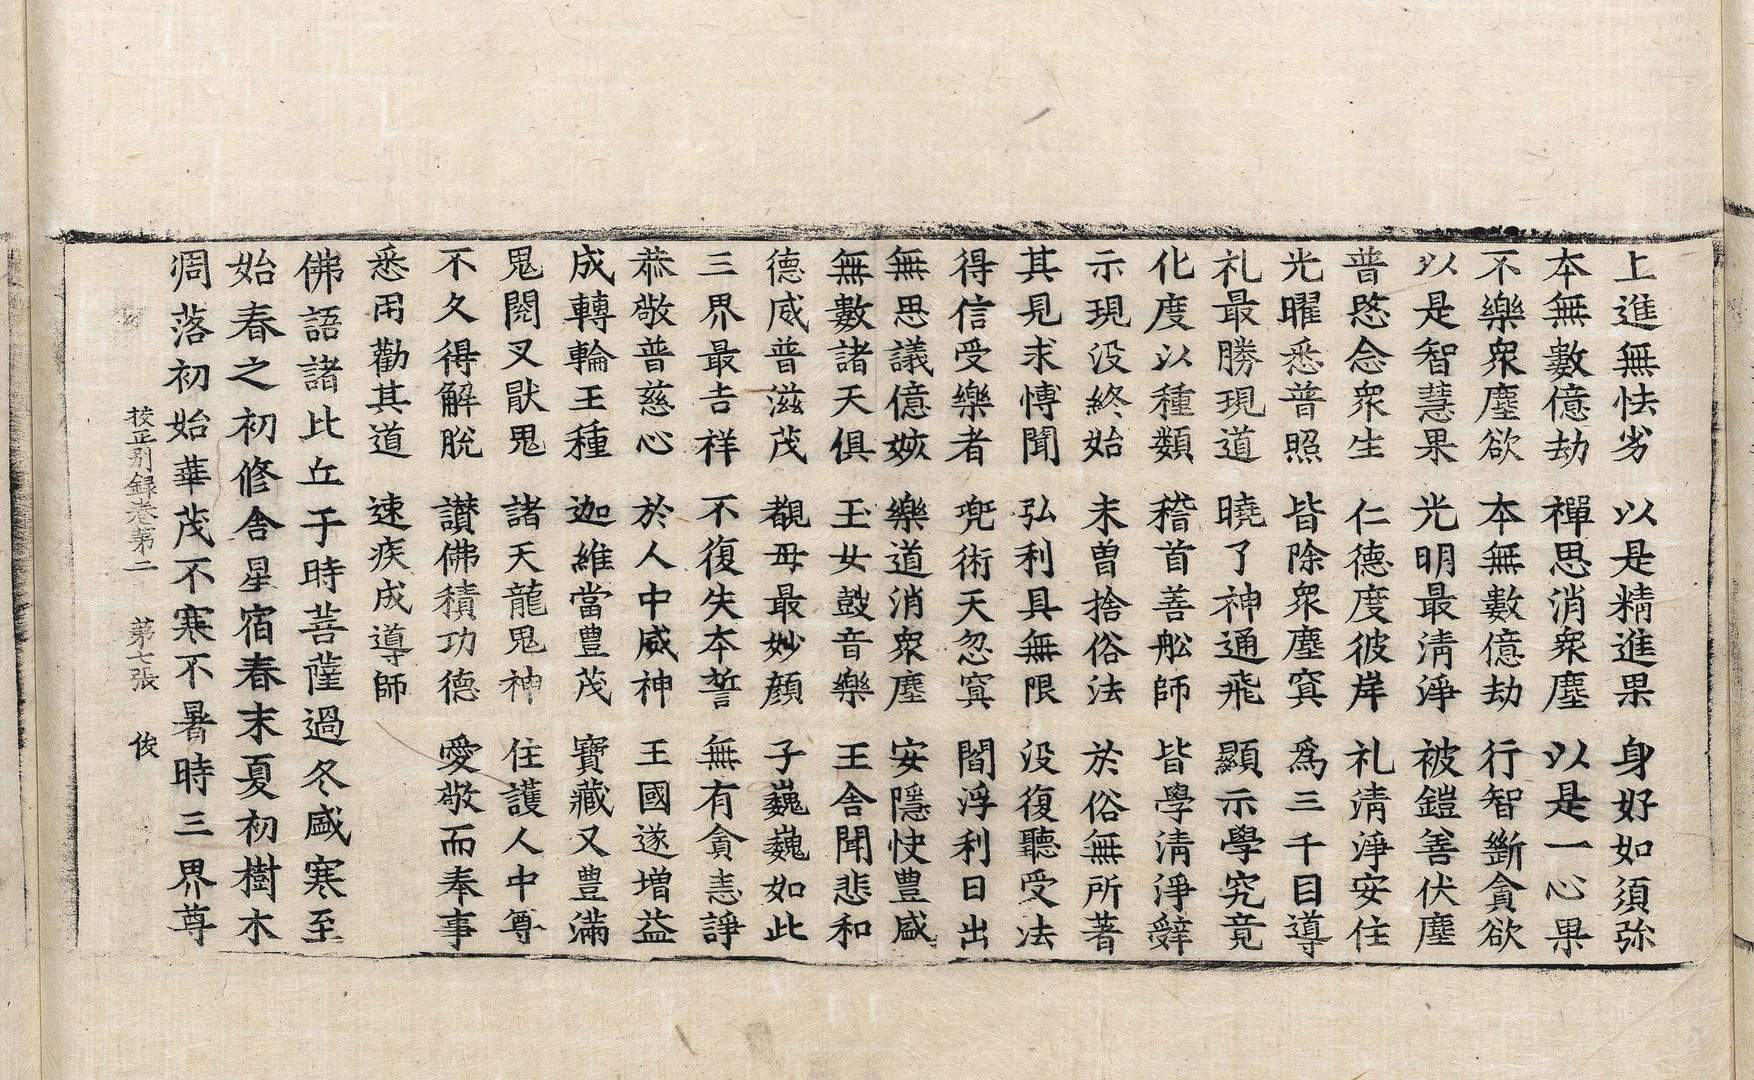 上進無怯劣　以是精進果　身好如須弥
本無數億劫　禪思消衆塵　以是一心果
不樂衆塵欲　本無數億劫　行智斷貪欲
以是智慧果　光明最清淨　被鎧善伏塵
普愍念衆生　仁德度彼岸　礼清淨安住
光曜悉普照　皆除衆塵㝠　爲三千日導
礼最勝現道　曉了神通飛　顯示學究竟
化度以種類　稽首善舩師　皆學清淨辤
示現没終始　未曽捨俗法　於俗無所著
其見求愽聞　弘利具無限　没復聽受法
得信受樂者　兜術天忽㝠　閻浮利日出
無思議億姟　樂道消衆塵　安隱快豊盛
無數諸天俱　玉女鼓音樂　王舍聞悲和
德威普滋茂　覩母最妙顔　子巍巍如此
三界最吉祥　不復失本誓　無有貪恚諍
恭敬普慈心　於人中威神　王國遂增益
成轉輪王種　迦維當豊茂　寶藏又豊滿
鬼閱叉猒鬼　諸天龍鬼神　住護人中尊
不久得解脫　讃佛積功德　愛敬而奉事
悉用勸其道　速疾成導師
佛語諸比丘于時菩薩過冬盛寒至
始春之初修舍星宿春末夏初樹木
凋落初始華茂不寒不暑時三界尊
校正別録卷第二　第七張　俊